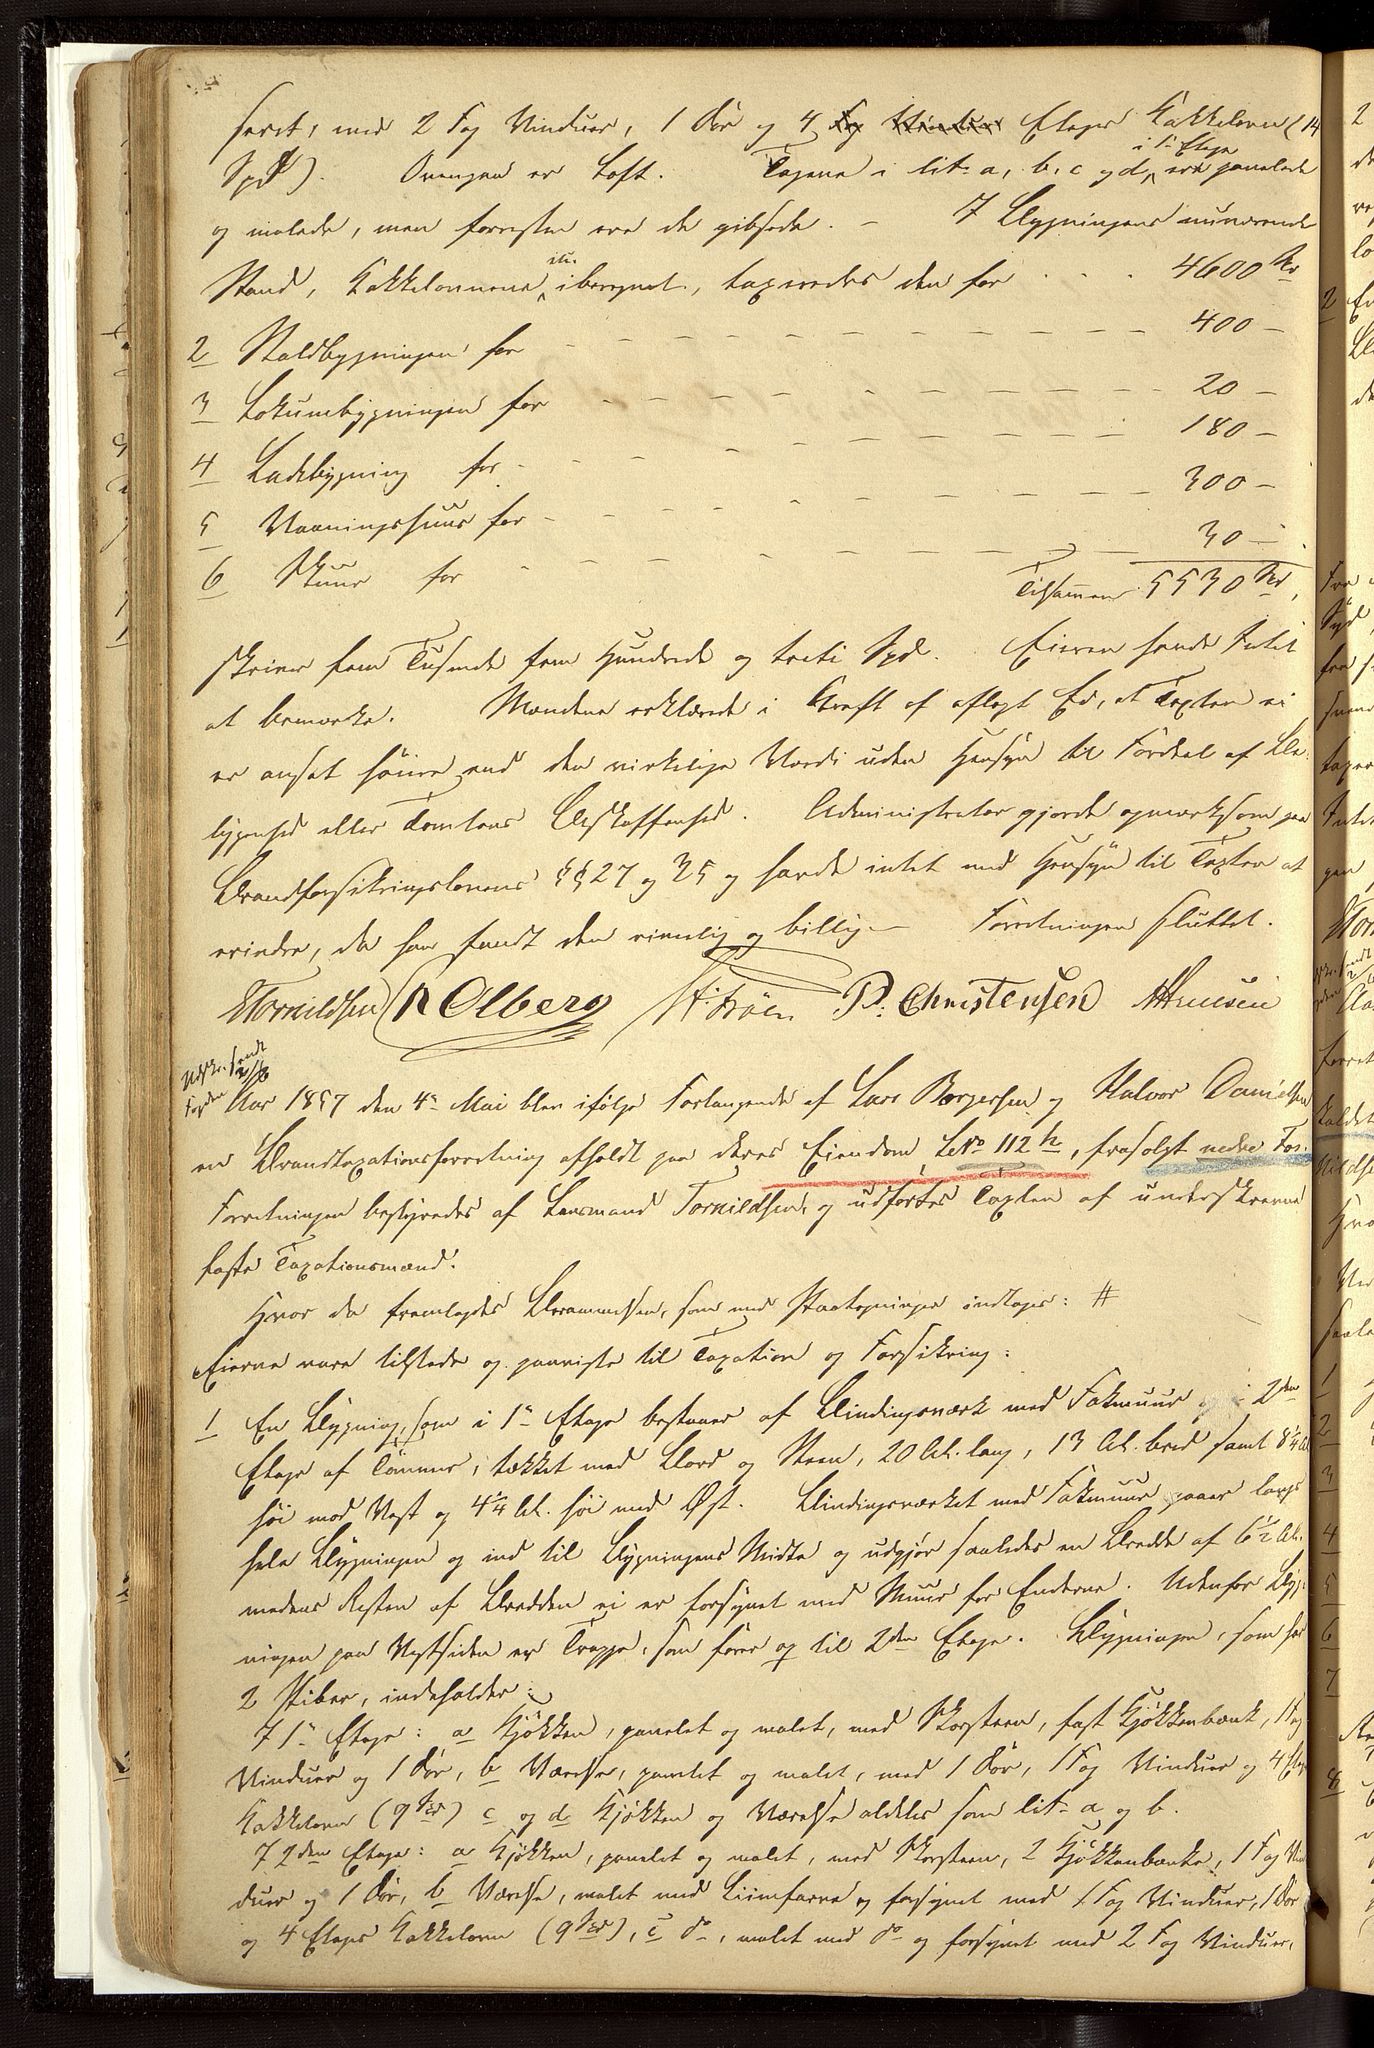 farvet, med 2 Fag Vinduer, 1 Dør og 4 Fag Vinduer Etages Kakkelovn (14
Spd). Ovenpaa er Loft. Tagene i lit: a, b, c og d, i 1ste Etage ere panelede
og malede, men forresten ere de gibsede. – I Bygningens nuværende
Stand, Kakkelovnene iberegnet, taxeredes den for 4600 Spd
2 Staldbygningen for 400 –
3 Lokumsbygningen for 20 –
4 Ladebygning for 180 –
5 Vaaningshuus for 300 –
6 Skuur for 30 –
Tilsammen 5530 Spd,
skriver fem Tusende fem Hundrede og treti Spd. Eieren havde Intet
at bemærke. Mændene erklærede i Kraft af aflagt Ed, at Taxten ei
er ansat høiere end den virkelige Værdi uden Hensyn til Fordeel af Be-
liggenhed eller Tomtens Beskaffenhed. Administrator gjorde opmærksom paa
Brandforsikringslovens §§ 27 og 35 og havde intet med Hensyn til Taxten at
erindre, da han fandt den rimelig og billig. – Forretningen sluttet.
Tornildsen R Olberg P: Christensen
Udskr. sendt
Fogden 2/6
Aar 1857 den 4de Mai blev ifølge Forlangende af Lars Borgersen og Halvor Danielsen
en Brandtaxationsforretning afholdt paa deres Eiendom LNo 112 h, frasolgt nedre Fos.
Forretningen bestyredes af Lensmand Tornildsen, og udførtes Taxten af underskrevne
faste Taxationsmænd.
Hvor da fremlagdes Brammelsen, som med Paategninger indtages: #
Eierne vare tilstede og paaviste til Taxation og Forsikring:
1 En Bygning, som i 1ste Etage bestaaer af Bindingsværk med Fakmuur og i 2den
Etage af Tømmer, tækket med Bord og Steen, 20 Al. lang, 13 Al. bred samt 8 1/4 Al.
høi mod Vest og 4 1/4 Al. høi mod Øst. Bindingsværket med Fakmuur gaaer langs
hele Bygningen og ind til Bygningens Midte og udgjør saaledes en Bredde af 6 1/2 Al.
medens Resten af Bredden ei er forsynet med Muur for Enderne. Udenfor Byg-
ningen paa Vestsiden er Trappe, som fører op til 2den Etage. Bygningen, som har
2 Piber, indeholder:
I 1ste Etage: a Kjøkken, panelet og malet, med Skorsteen, fast Kjøkkenbænk, 1 Fag
Vinduer og 1 Dør, b Værelse, panelet og malet, med 1 Dør, 1 Fag Vinduer og 4 Etages
Kakkelovn (9 Spd) c og d Kjøkken og Værelse aldeles som lit: a og b.
I 2den Etage: a Kjøkken, panelet og malet, med Skorsteen, 2 Kjøkkenbænke, 1 Fag Vin-
duer og 1 Dør, b Værelse, malet med Liimfarve og forsynet med 1 Fag Vinduer, 1 Dør
og 4 Etages Kakkelovn (9 Spd), c do, malet med do og forsynet med 2 Fag Vinduer,